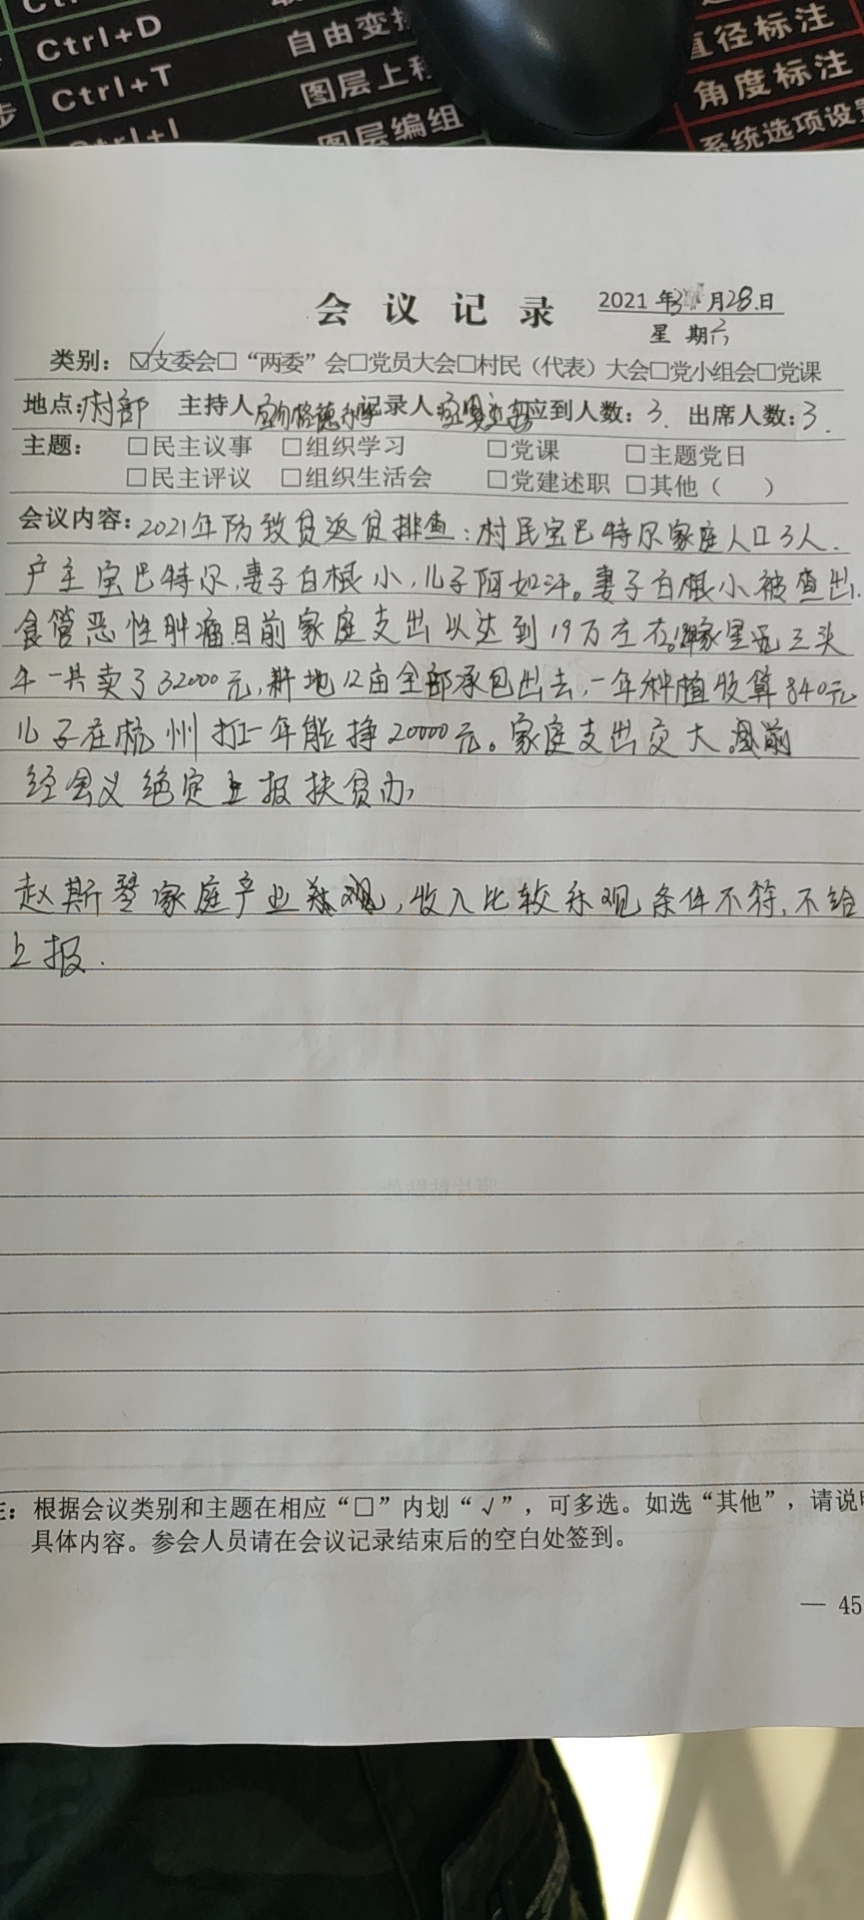 Ctrl+D
Ctrl+T 自由变换
Ctrl+I 图层上移
图层编组
直径标注
角度标注
系统选项设置
会议记录 2021年3月28日
星期六
类别：☑支委会□“两委”会□党员大会□村民（代表）大会□党小组会□党课
地点：村部 主持人 记录人 应到人数：3. 出席人数：3.
主题： □民主议事 □组织学习 □党课 □主题党日
□民主评议 □组织生活会 □党建述职 □其他（ ）
会议内容：2021年防致贫返贫排查：村民宝巴特尔家庭人口3人.
户主宝巴特尔,妻子白根小,儿子阿如汗。妻子白根小被查出
食管恶性肿瘤目前家庭支出以达到19万左右。家里 三头
牛一共卖了32000元,耕地12亩全部承包出去,一年种植收算840元
儿子在杭州打工一年能挣20000元。家庭支出交大。目前
经会义绝定上报扶贫办,
赵斯琴家庭产业乐观,收入比较乐观条件不符,不给
上报.
注：根据会议类别和主题在相应“□”内划“√”，可多选。如选“其他”，请说明
具体内容。参会人员请在会议记录结束后的空白处签到。
— 45